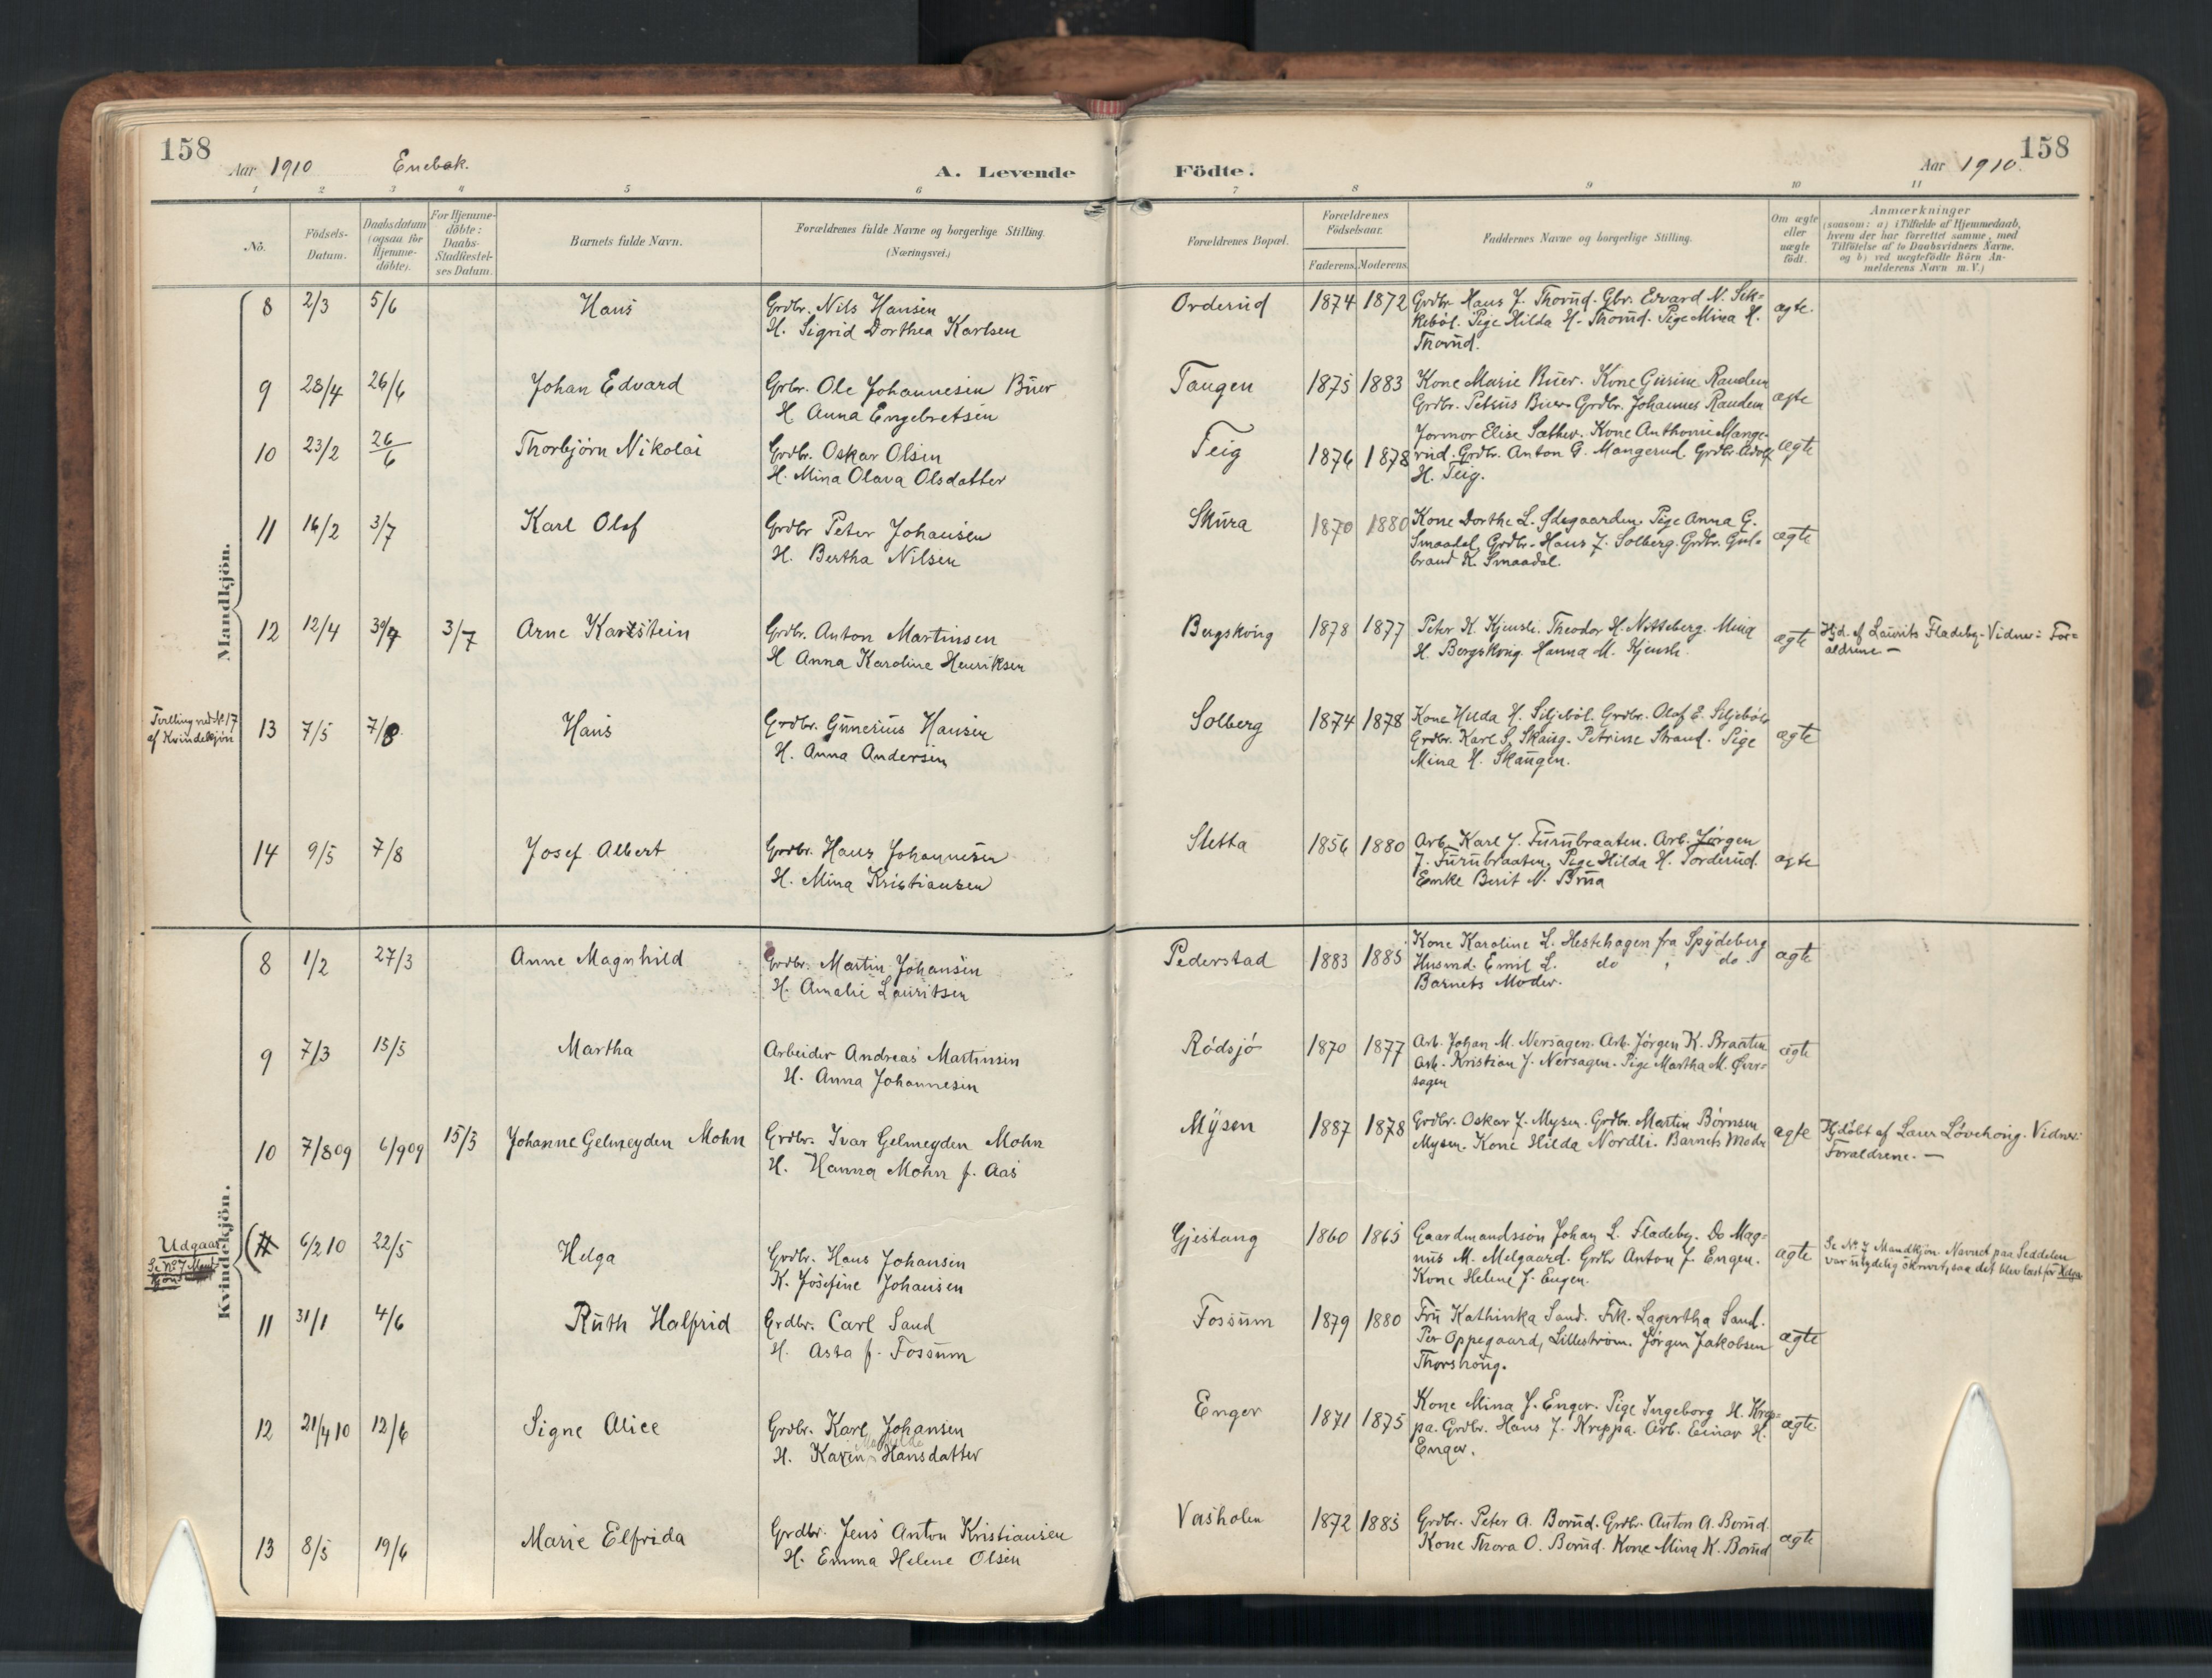 158
Aar 1910 Enebak.
A. Levende
Födte.
Aar 1910.
158
1 2 3 4 5 6 7 8 9 10 11
No.
Födsels-
Datum.
Daabsdatum
(ogsaa for
Hjemme-
döbte).
For Hjemme-
döbte:
Daabs-
Stadfæstel-
ses Datum.
Barnets fulde Navn.
Forældrenes fulde Navne og borgerlige Stilling.
(Næringsvei.)
Forældrenes Bopæl.
Forældrenes
Födselsaar.
Faderens. Moderens.
Faddernes Navne og borgerlige Stilling.
Om ægte
eller
uægte
födt.
Anmærkninger
(saasom: a) i Tilfælde af Hjemmedaab,
hvem der har forrettet samme, med
Tilföielse af to Daabsvidners Navne,
og b) ved uægtefödte Börn An-
melderens Navn m. V.)
Mandkjön.
8 2/3 5/6 Hans
Grdbr. Nils Hansen
H. Sigrid Dorthea Karlsen
Orderud 1874 1872
Grdbr Hans J. Thorud. Gbr. Edvard N. Sik-
kebøl. Pige Hilda H. Thorud. Pige Mina H.
Thorud.
ægte.
9 28/4 26/6 Johan Edvard
Grbr. Ole Johannesen Buer
H Anna Engebretsen
Tangen 1875 1883
Kone Marie Buer. Kone Gurine Randem
Grdbr. Petrus Buer. Grdbr. Johannes Randem
ægte
10 23/2 26/6 Thorbjørn Nikolai
Grdbr. Oskar Olsen
H. Mina Olava Olsdatter
Teig 1876 1878
Jormor Elise Sæther. Kone Anthonie Mange-
rud. Grdbr. Anton G. Mangerud. Grdbr. Adolf
H. Teig.
ægte
11 16/2 3/7 Karl Olaf
Grdbr Peter Johansen
H. Bertha Nilsen
Skura 1870 1880
Kone Dorthe L. Ødegaarden. Pige Anna G.
Smaadal. Grdbr. Hans J. Solberg. Grdbr. Gul-
brand K. Smaadal.
ægte
12 12/4 30/4 3/7 Arne Karstein
Grdbr. Anton Martinsen
H Anna Karoline Henriksen
Bergskoug 1878 1877
Peter K. Kjensli. Theodor H. Notteberg. Mina
H. Bergskoug. Hanna M. Kjensli.
ægte
Hjd. af Laurits Fladeby. Vidner: For-
ældrene —
Tvilling ved No 17
af Kvindekjøn
13 7/5 7/8 Hans
Grdbr. Gunerius Hansen
H. Anna Andersen
Solberg 1874 1878
Kone Hilda H. Siljebøl. Grdbr. Olaf E. Siljebøl.
Grdbr. Karl S. Skaug. Petrine Strand. Pige
Mina H. Skaugen.
ægte
14 9/5 7/8 Josef Albert
Grdbr. Hans Johannesen
H. Mina Kristiansen
Sletta 1856 1880
Arb. Karl J. Furubraaten. Arb. Jørgen
J. Furubraaten. Pige Hilda H. Torderud.
Enke Berit N. Brua
ægte
Kvindekjön.
8 1/2 27/3 Anne Magnhild
Grdbr. Martin Johansen
H. Amalie Lauritsen
Pederstad 1883 1885
Kone Karoline L. Hestehagen fra Spydeberg
Husmd. Emil L. do , do.
Barnets Moder.
ægte
9 7/3 15/5 Martha
Arbeider Andreas Martinsen
H. Anna Johannesen
Rödsjö 1870 1877
Arb. Johan M. Nersagen. Arb. Jørgen K. Braaten
Arb. Kristian J. Nersagen. Pige Martha M. Øver-
sagen
ægte
10 7/8 09 6/9 09 15/5 Johanne Gelmeyden Mohn
Grdbr. Ivar Gelmeyden Mohn
H. Hanna Mohn f. Aas
Mysen 1887 1878
Grdbr. Oskar J. Mysen. Grdbr. Martin Børnsen
Mysen. Kone Hilda Nordli. Barnets Moder
ægte
Hjdøbt af Laur Løvehoug. Vidner:
Forældrene. —
Udgaar.
Se No 7 Mand-
kjøn
6/2 10 22/5 Helga
Grdbr. Hans Johansen
K. Josefine Johansen
Gjestang 1860 1865
Gaardmandssøn Johan L. Fladeby. Do Mag-
nus M. Melgaard. Grdbr Anton J. Engen.
Kone Helene J. Engen.
ægte
Se No 7 Mandkjøn. Navnet paa Seddelen
var utydelig skrevet, saa det blev læst for Helga
11 31/1 4/6 Ruth Halfrid
Grdbr. Carl Sand
H. Asta f. Fossum
Fossum 1879 1880
Fru Kathinka Sand. Frk. Lagertha Sand.
Per Oppegaard, Lilleström. Jørgen Jakobsen
Thorshoug.
ægte
12 21/4 10 12/6 Signe Alice
Grdbr. Karl Johansen
H. Karen Hansdatter
Enger 1871 1875
Kone Mina J. Enger. Pige Ingeborg H. Krep-
pa. Grdbr. Hans J. Kreppa. Arb. Einar H.
Enger.
ægte
13 8/5 19/6 Marie Elfrida
Grdbr. Jens Anton Kristiansen
H. Emma Helene Olsen
Vasholen 1872 1885
Grdbr. Peter A. Borud. Grdbr. Anton A. Borud.
Kone Thora O. Borud. Kone Mina K. Borud
ægte